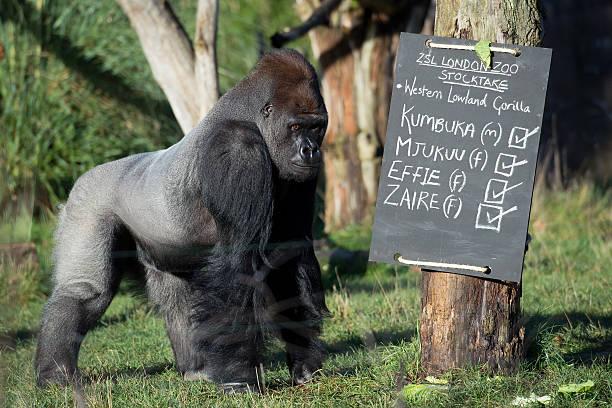 ZSL LONDON ZOO
STOCKTAKE
• Western Lowland Gorilla
KUMBUKA (m) ☑
MJUKUU (F) ☑
EFFIE (F) ☑
ZAIRE (F) ☑